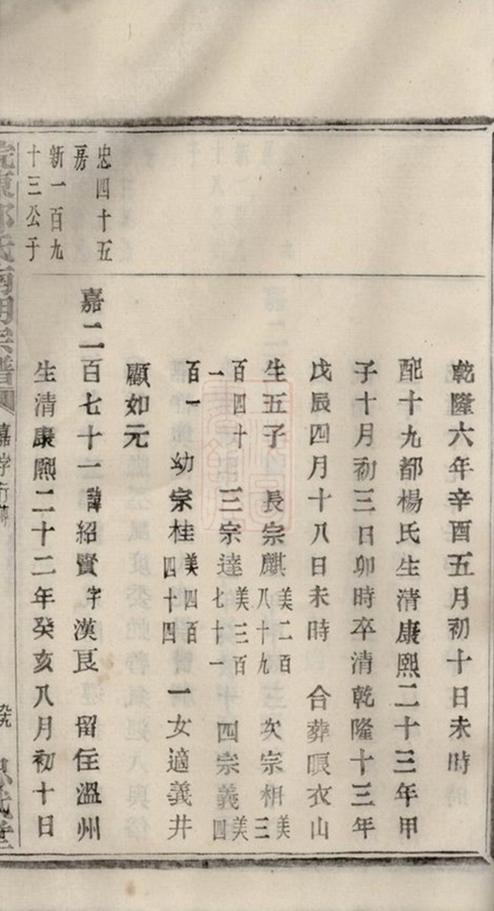 乾隆六年辛酉五月初十日未時
配十九都楊氏生清康熙二十三年甲
子十月初三日卯時卒清乾隆十三年
戊辰四月十八日未時 合葬眼衣山
生五子 長宗麒美二百八十九 次宗相美三
百四十一 三宗達美三百七十一 四宗義美四
百一 幼宗桂美四百四十四 一女適義井
顧如元
忠四十五
房
新一百九
十三公子
嘉二百七十一諱紹賢字漢艮 留住溫州
生清康熙二十二年癸亥八月初十日
氏 宗譜 嘉字行